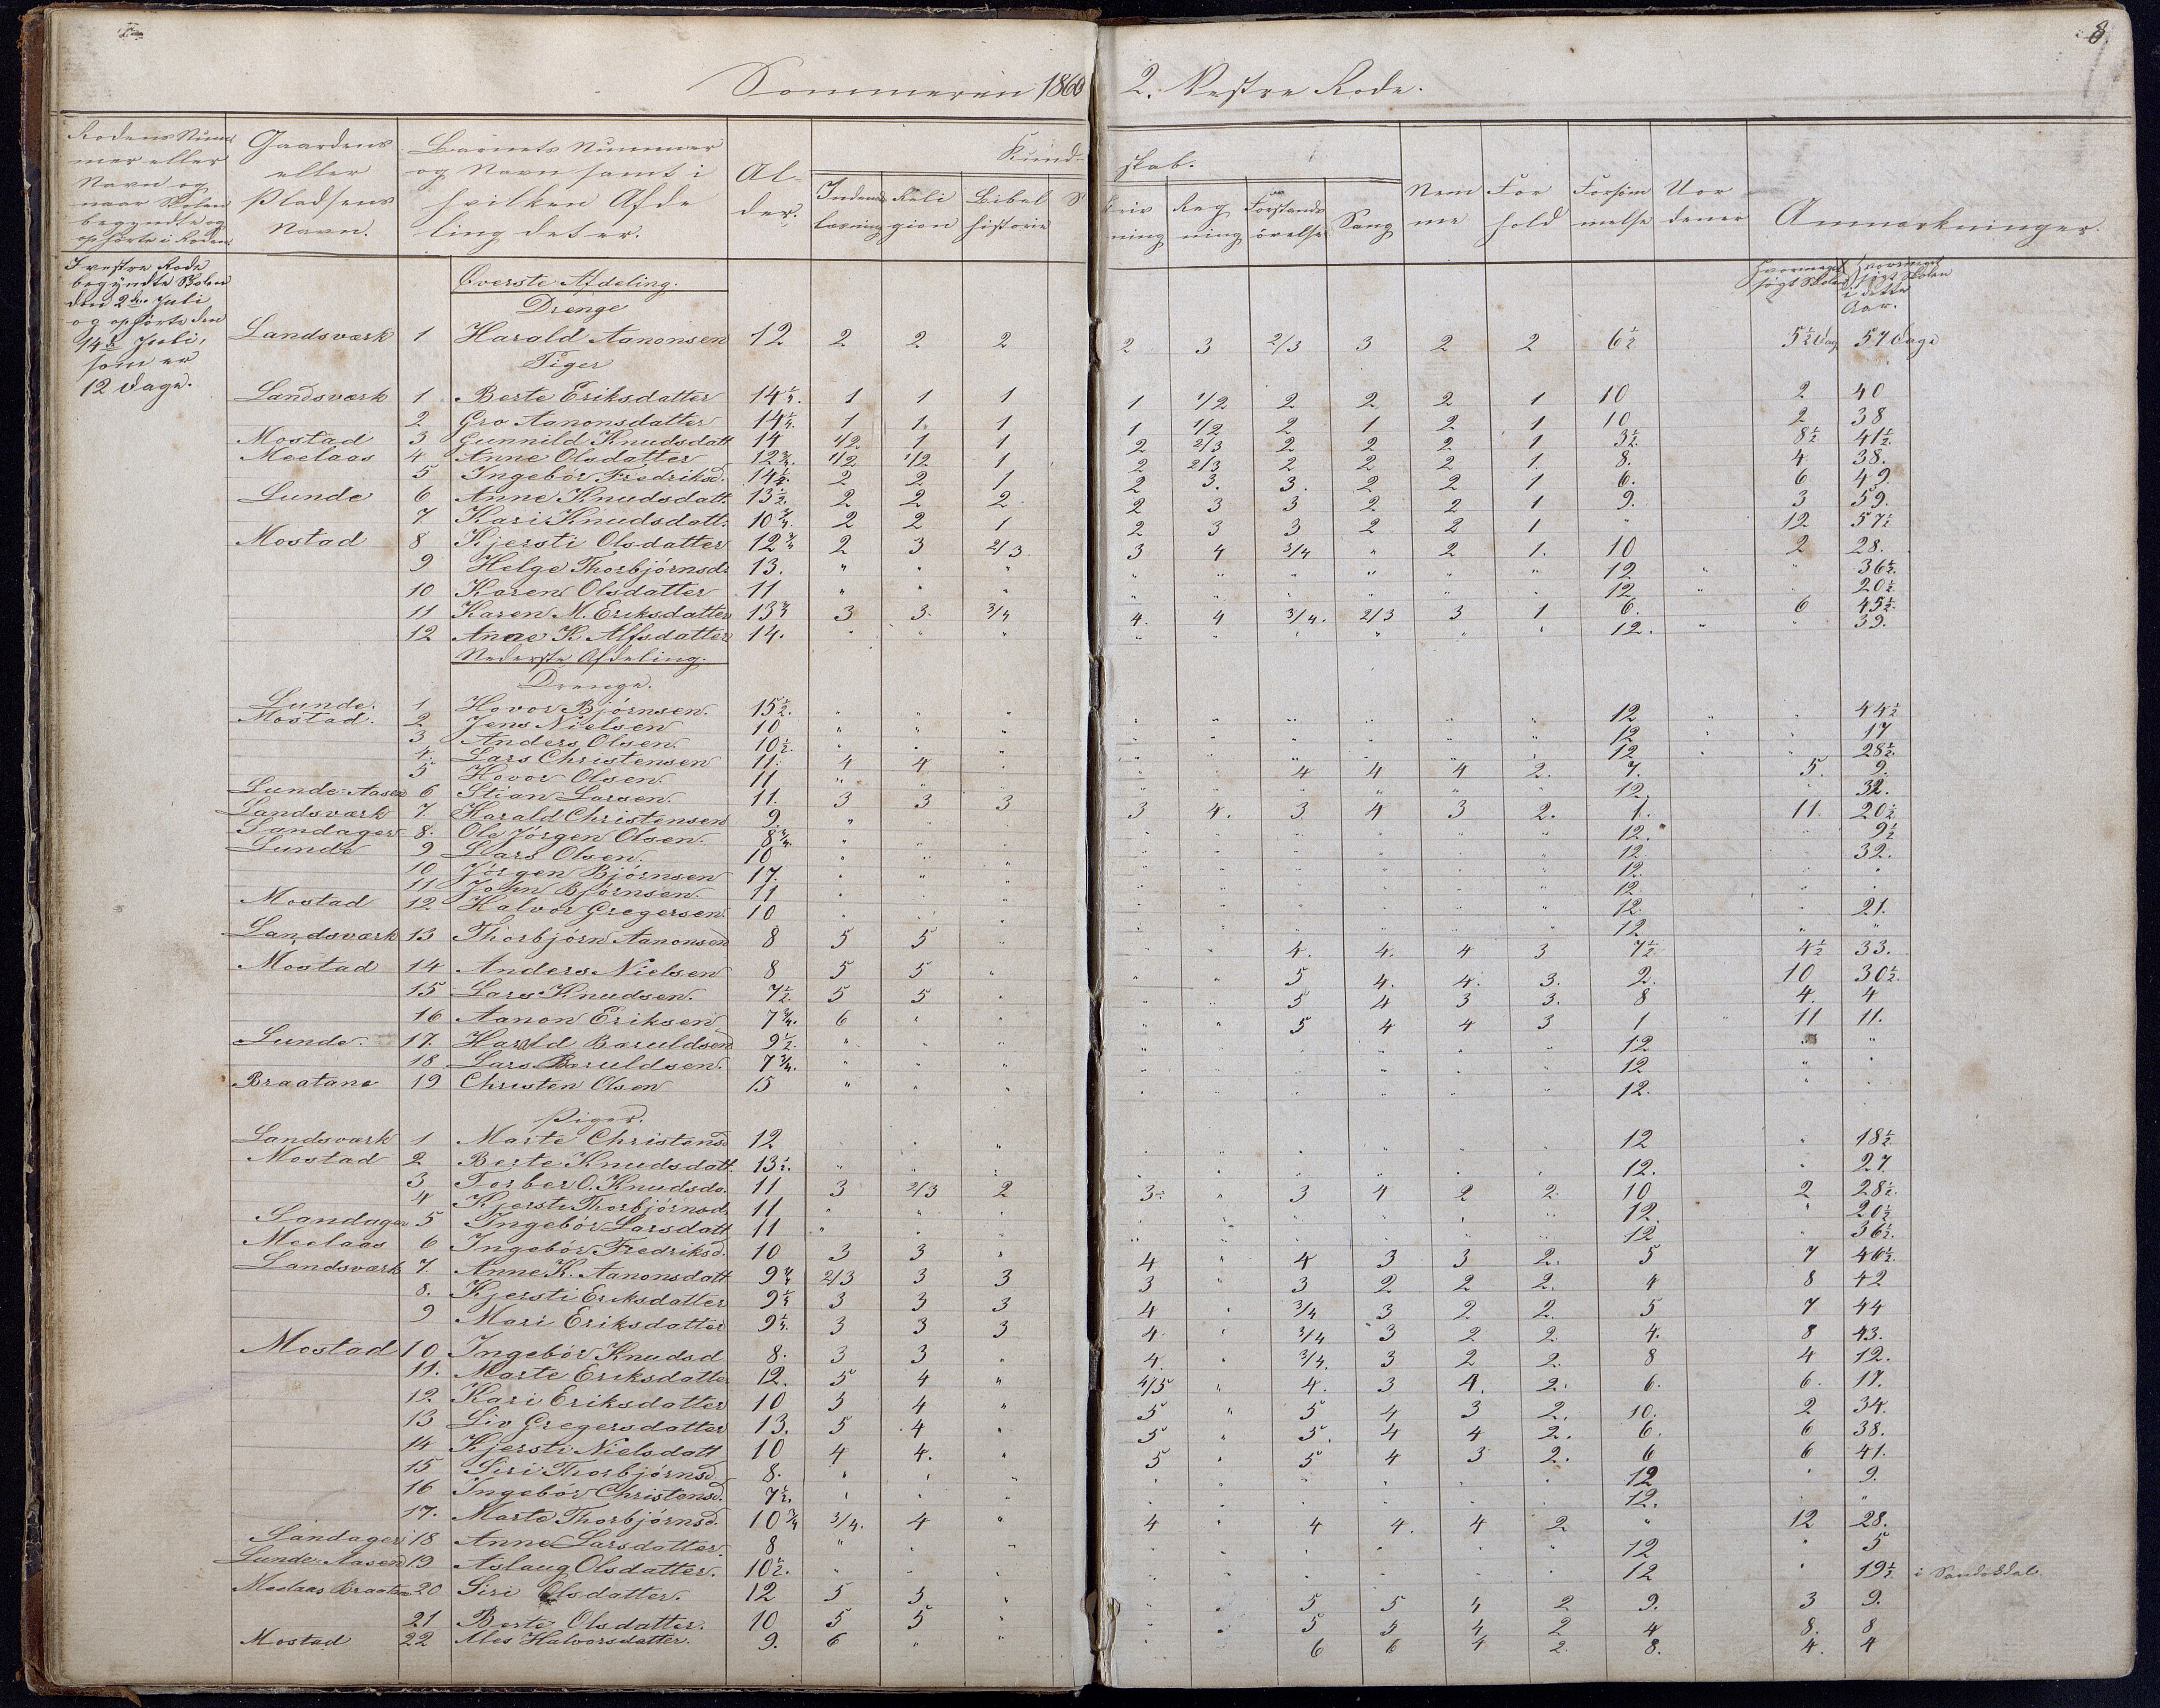 8.
Sommeren 1860 2. Vestre Rode.
Rodens Nummer eller Navn og naar Skolen begyndte og ophørte i Roden.
Gaardens eller Pladsens Navn.
Barnets Nummer og Navn samt i hvilken Afdeling det er.
Alder.
Kundskab.
Indenadslæsning Religion Bibelhistorie Skrivning Regning Forstandsøvelse Sang
Nemme Forhold Forsømmelse Uordener Anmærkninger.
I vestre Rode
begyndte Skolen
den 2den Juli
og ophørte den
14de Juli,
som er
12 Dage.
Hvormeget søgt Skolen Hvormeget søgt Skolen i dette Aar.
Øverste Afdeling.
Drenge
Landsværk 1 Harald Aanonsen 12 2 2 2 2 3 2/3 3 2 2 6½ 5½ Dag 57 Dage
Piger
Landsværk 1 Berte Eriksdatter 14¼. 1 1 1 1 1/2 2 2 2 1 10 2 40
2 Gro Aanonsdatter 14¼. 1 1. 1 1 1/2 2 1 2 1 10 2 38
Mostad 3 Gunnild Knudsdatt 14 1/2 1 1 2 2/3 2 2 2 1 3½. 8½ 41½
Meelaas 4 Anne Olsdatter 12¾. 1/2 1/2 1 2 2/3 2 2 2 1. 8. 4 38.
5 Ingebor Fredriksd. 14½. 2 2 1 2 3. 3. 2 2 1 6. 6 49.
Lunde 6 Anne Knudsdatt. 13½. 2 2 2 2 3 3 2 2 1 9. 3 59.
7. Kari Knudsdatt. 10¾. 2 2 1 2 3 3 2 2 1 " 12 57½
Mostad 8 Kjersti Olsdatter 12¾ 2 3 2/3 3 4 3/4 " 2 1. 10 2 28.
9 Helge Thorbjørnsd. 13. " " " " " " " " " 12 " " 36½.
10 Karen Olsdatter 11 " " " " " " " " " 12 " " 20½
11 Karen M. Eriksdatter 13¾ 3 3. 3/4 4. 4 3/4. 2/3 3 1 6. 6 45½.
12 Anne K. Alfsdatter 14. " " " " " " " " " 12. " " 39.
Nederste Afdeling.
Drenge.
Lunde. 1 Hovor Bjørnsen. 15½. " " " " " " " " " 12 " " 44½
Mostad. 2 Jens Nielsen 10 " " " " " " " " " 12 " " 17
3 Anders Olsen. 10½. " " " " " " " " " 12. " " 28½.
4. Lars Christensen 11. 4 4 " " " 4 4 4 2. 7. 5. 9.
5 Hovor Olsen. 11 " " " " " " " " " 12. " 32.
Lunde-Aasen 6 Stian Larsen. 11. 3 3 3 3 4. 3 4 3 2. 1. 11. 20½
Landsværk 7. Harald Christensen 9. " " " " " " " " " 12. " 9½
Sandager 8. Ole Jørgen Olsen. 8¾. " " " " " " " " " 12 " 32.
Lunde 9 Lars Olsen. 10 " " " " " " " " " 12. " "
10 Jørgen Bjørnsen 17. " " " " " " " " " 12. " "
11 John Bjørnsen. 11 " " " " " " " " " 12. " 21.
Mostad 12 Halvor Gregersen. 10 " " " " " " " " " 12 " "
Landsværk 13 Thorbjørn Aanonsen 8 5 5 " " " 4. 4. 4 3 7½ 4½ 33.
Mostad 14 Anders Nielsen 8 5 5 " " " 5 4. 4. 3. 2. 10 30½.
15 Lars Knudsen. 7½. 5 5 " " " 5 4 3 3. 8 4. 4
16 Aanon Eriksen 7¾. 6 " " " " 5 4 4 3 1 " 11 11.
Lunde. 17. Harald Baruldsen 9½. " " " " " " " " " 12 " "
18 Lars Baruldsen. 7¾. " " " " " " " " " 12 " "
Braatane 19 Christen Olsen 15 " " " " " " " " " 12. " "
Piger.
Landsværk 1 Marte Christensd 12 " " " " " " " " " 12 " 18½.
Mostad 2 Berte Knudsdatt. 13½. " " " " " " " " " 12. " 27
3 Torber O. Knudsda. 11 3 2/3 2 3 " 3 4 2 2 10 2 28½.
4 Kjersti Thorbjørnsd. 11 " " " " " " " " " 12. " 20½
Sandager 5 Ingebor Larsdatt 11 " " " " " " " " " 12 " 36½.
Meelaas 6 Ingebor Fredriksd. 10 3 3 " 4 " 4 3 3 2. 5 7 46½.
Landsværk 7. Anne K. Aanonsdatt 9¾ 2/3 3 3 3 " 3 2 2 2. 4 8 42
8. Kjersti Eriksdatter 9¼ 3 3 3 4 " 3/4 3 2 2. 5 7 44
9 Mari Eriksdatter 9¼. 3 3 3 4. " 3/4 3 2 2. 4. 8 43.
Mostad 10 Ingebor Knudsd 8. 3 3 " 4. " 3/4. 3 2 2. 8 4 12.
11. Marte Eriksdatter 12. 5 4 " 4/5 " 4. 3 4. 2. 6. 6. 17.
12. Kari Eriksdatter 10 5 4 " 5 " 5 4 3 2. 10. 2 34.
13 Liv Gregersdatter 13. 5 4 " 5 " 5. 4 4 2. 6. 6 38.
14 Kjersti Nielsdatt 10 4 4. " 5 " 5 4 3 2. 6 6 41.
15 Siri Thorbjørnsd 8. " " " " " " " " " 12 " 9.
16 Ingebor Christensd. 7½. " " " " " " " " " 12. " "
17. Marte Thorbjørnsd. 10¾ 3/4. 4 " 4 " 4 4. 4 2 " 12 28.
Sandager 18 Anne Larsdatter 8 " " " " " " " " " 12 " 5
Lunde-Aasen 19 Aslaug Olsdatter. 10½. " " " " " " " " " 12 " 19½ i Sandøkdal.
Meelaas Braatene 20 Siri Olsdatter. 12 5 5 " " " 5 5 4 2 9. 3 9.
21 Berte Olsdatter. 10 5 5 " " " 5 5 4 2 4 8. 8
Mostad 22 Ales Halvorsdatter. 9. 6 " " " " 6 6 4 2. 8. 4. 4